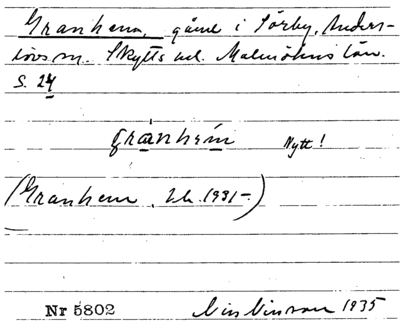 Granhem, gård i Sörby, Anders-
lövs sn. Skytts hd. Malmöhus län.
S. 24
granhem Nytt!
(Granhem, 1931-)
Nr 5802 1935